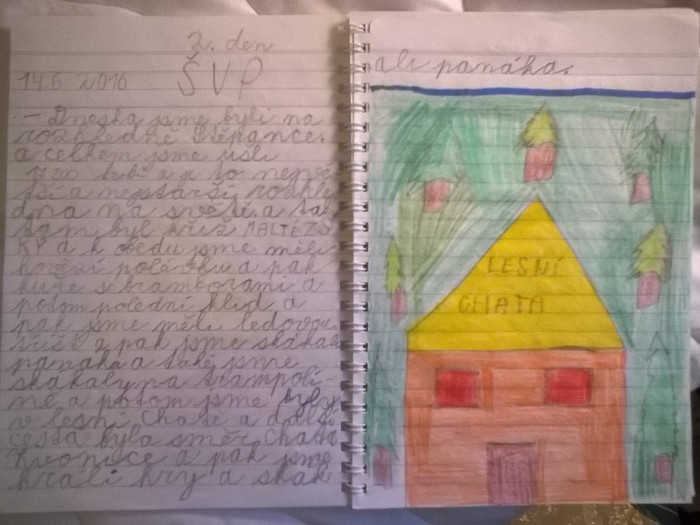 2. den
14.6 2016 ŠVP
- Dneska jsme byli na
rozhledně Štěpance.
a celkem jsme ušli
a je to nejvě
tší a nejstarší rozhle
dna na světě a tak
tam byl kříž MALTÉZS
KÝ a k obědu jsme měli
hovězí polévku a pak
kuře s bramborami a
potom polední klid a
pak jsme měli ledovou
tříšť a pak jsme skákali
panáka a také jsme
skákaly na trampolí-
ně a potom jsme byly
v lesní chatě a další
cesta byla směr chata
a pak jsme
hráli hry a skák
ali panáka.
LESNÍ
CHATA